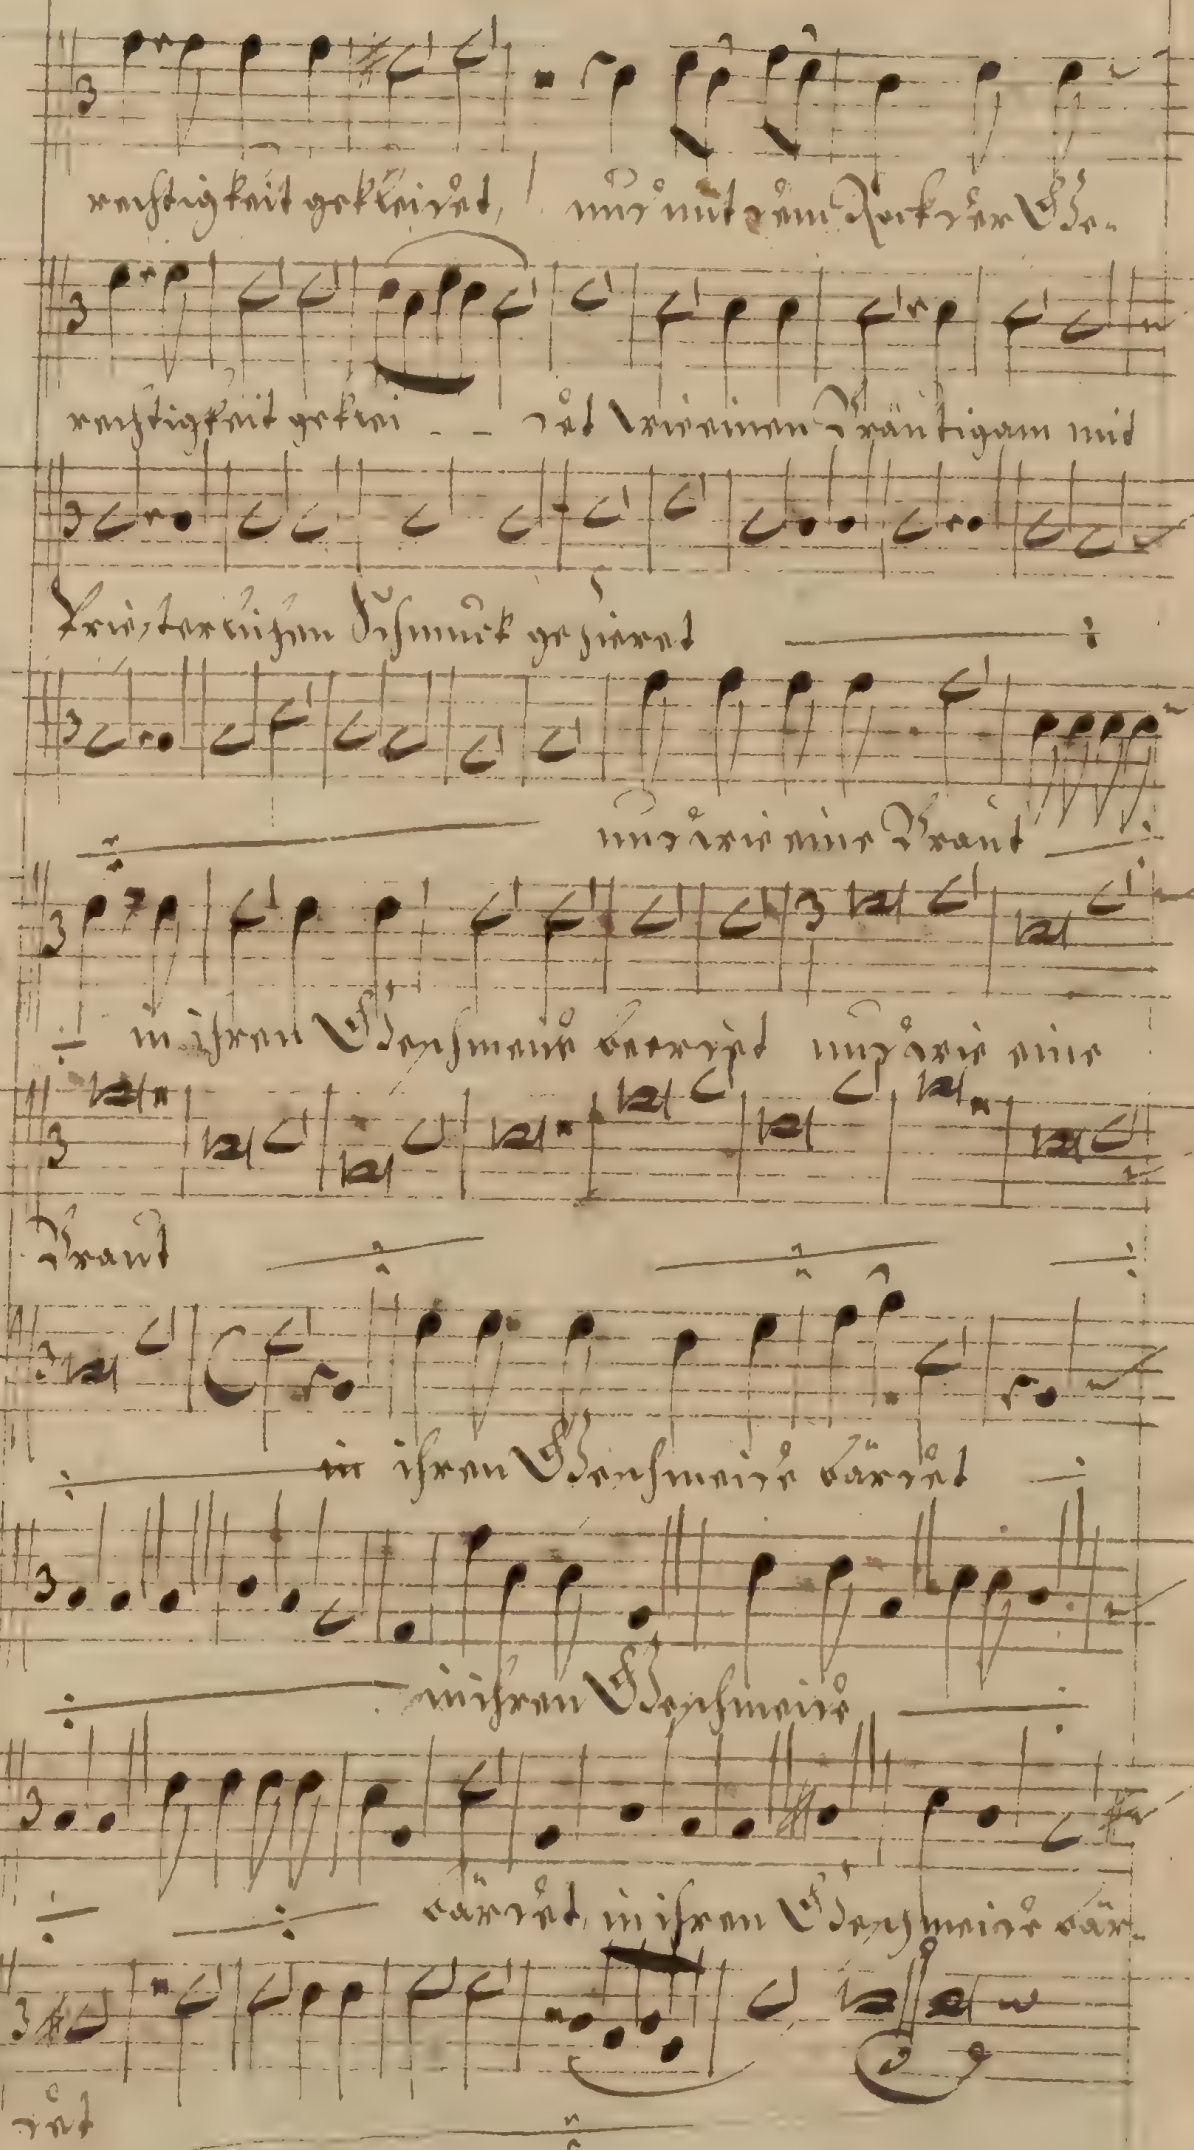 rechtigkeit gekleidet, und mit dem Rock der Ge-
rechtigkeit geklei - - det wie einen Bräutigam mit
Priesterlichen Schmuck gezieret
und wie eine Braut
in ihren Geschmeide beerdet und wie eine
Braut
in ihren Geschmeide bärdet
in ihren Geschmeide
bärdet, in ihren Geschmeide bär-
det